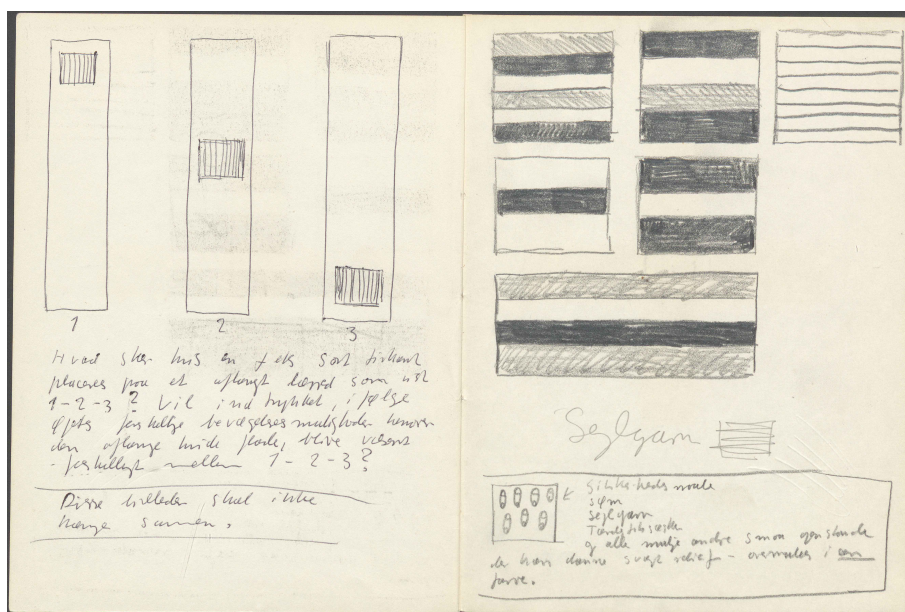 1
2
3
Hvad sker hvis en f eks sort firkant
placeres på et aflangt lærred som vist
1-2-3? Vil indtrykket, ifølge
øjets forskellige bevægelsesmuligheder henover
den aflange hvide flade, blive væsent
-forskelligt mellem 1-2-3?
Disse billeder skal ikke
hænge sammen.
Sejlgarn
Sikkerhedsnåle
søm
Sejlgarn
Tændstikæske
og alle mulige andre små genstande
der kan danne svagt relief - overmales i een
farve.